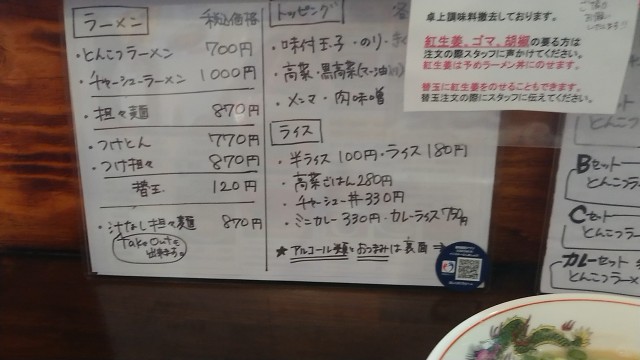 ラーメン 税込価格
・とんこつラーメン 700円
・チャーシューラーメン 1000円
・担々麺 870円
・つけとん 770円
・つけ担々 870円
替玉 120円
・汁なし担々麺 870円
Take Outも
出来ます。
トッピング
・味付玉子・のり・
・高菜・黒高菜(マー油
・メンマ・肉味噌
ライス
・半ライス 100円・ライス 180円
・高菜ごはん 280円
・チャーシュー丼 330円
・ミニカレー 330円・カレーライス 750円
★アルコール類とおつまみは裏面⇒
卓上調味料撤去しております。
紅生姜、ゴマ、胡椒の要る方は
注文の際スタッフに声かけてください。
紅生姜は予めラーメン丼にのせます。
替玉に紅生姜をのせることもできます。
替玉注文の際にスタッフに伝えてください。
とんこつ
Bセット
とんこつラ
Cセット
とんこつラ
カレーセット
とんこつラーメ